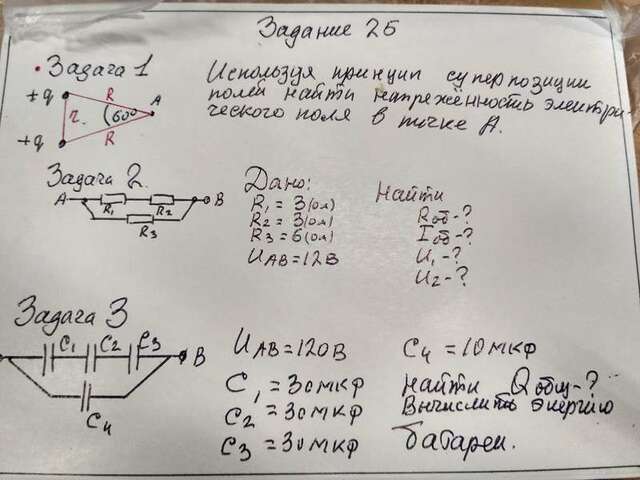 Задание 25
Задача 1
+q
R
A
r.
60°
+q
R
Используя принцип суперпозиции
полей найти напряжённость электри-
ческого поля в точке А.
Задача 2.
A
B
R1
R2
R3
Дано:
R1 = 3 (ом)
R2 = 3 (ом)
R3 = 6 (ом)
UAB = 12В
Найти
Rоб-?
Iоб-?
U1-?
U2-?
Задача 3
C1 C2 C3
B
C4
UAB = 120В
C1 = 30мкф
C2 = 30мкф
C3 = 30мкф
C4 = 10мкф
Найти Qобщ-?
Вычислить энергию
батареи.